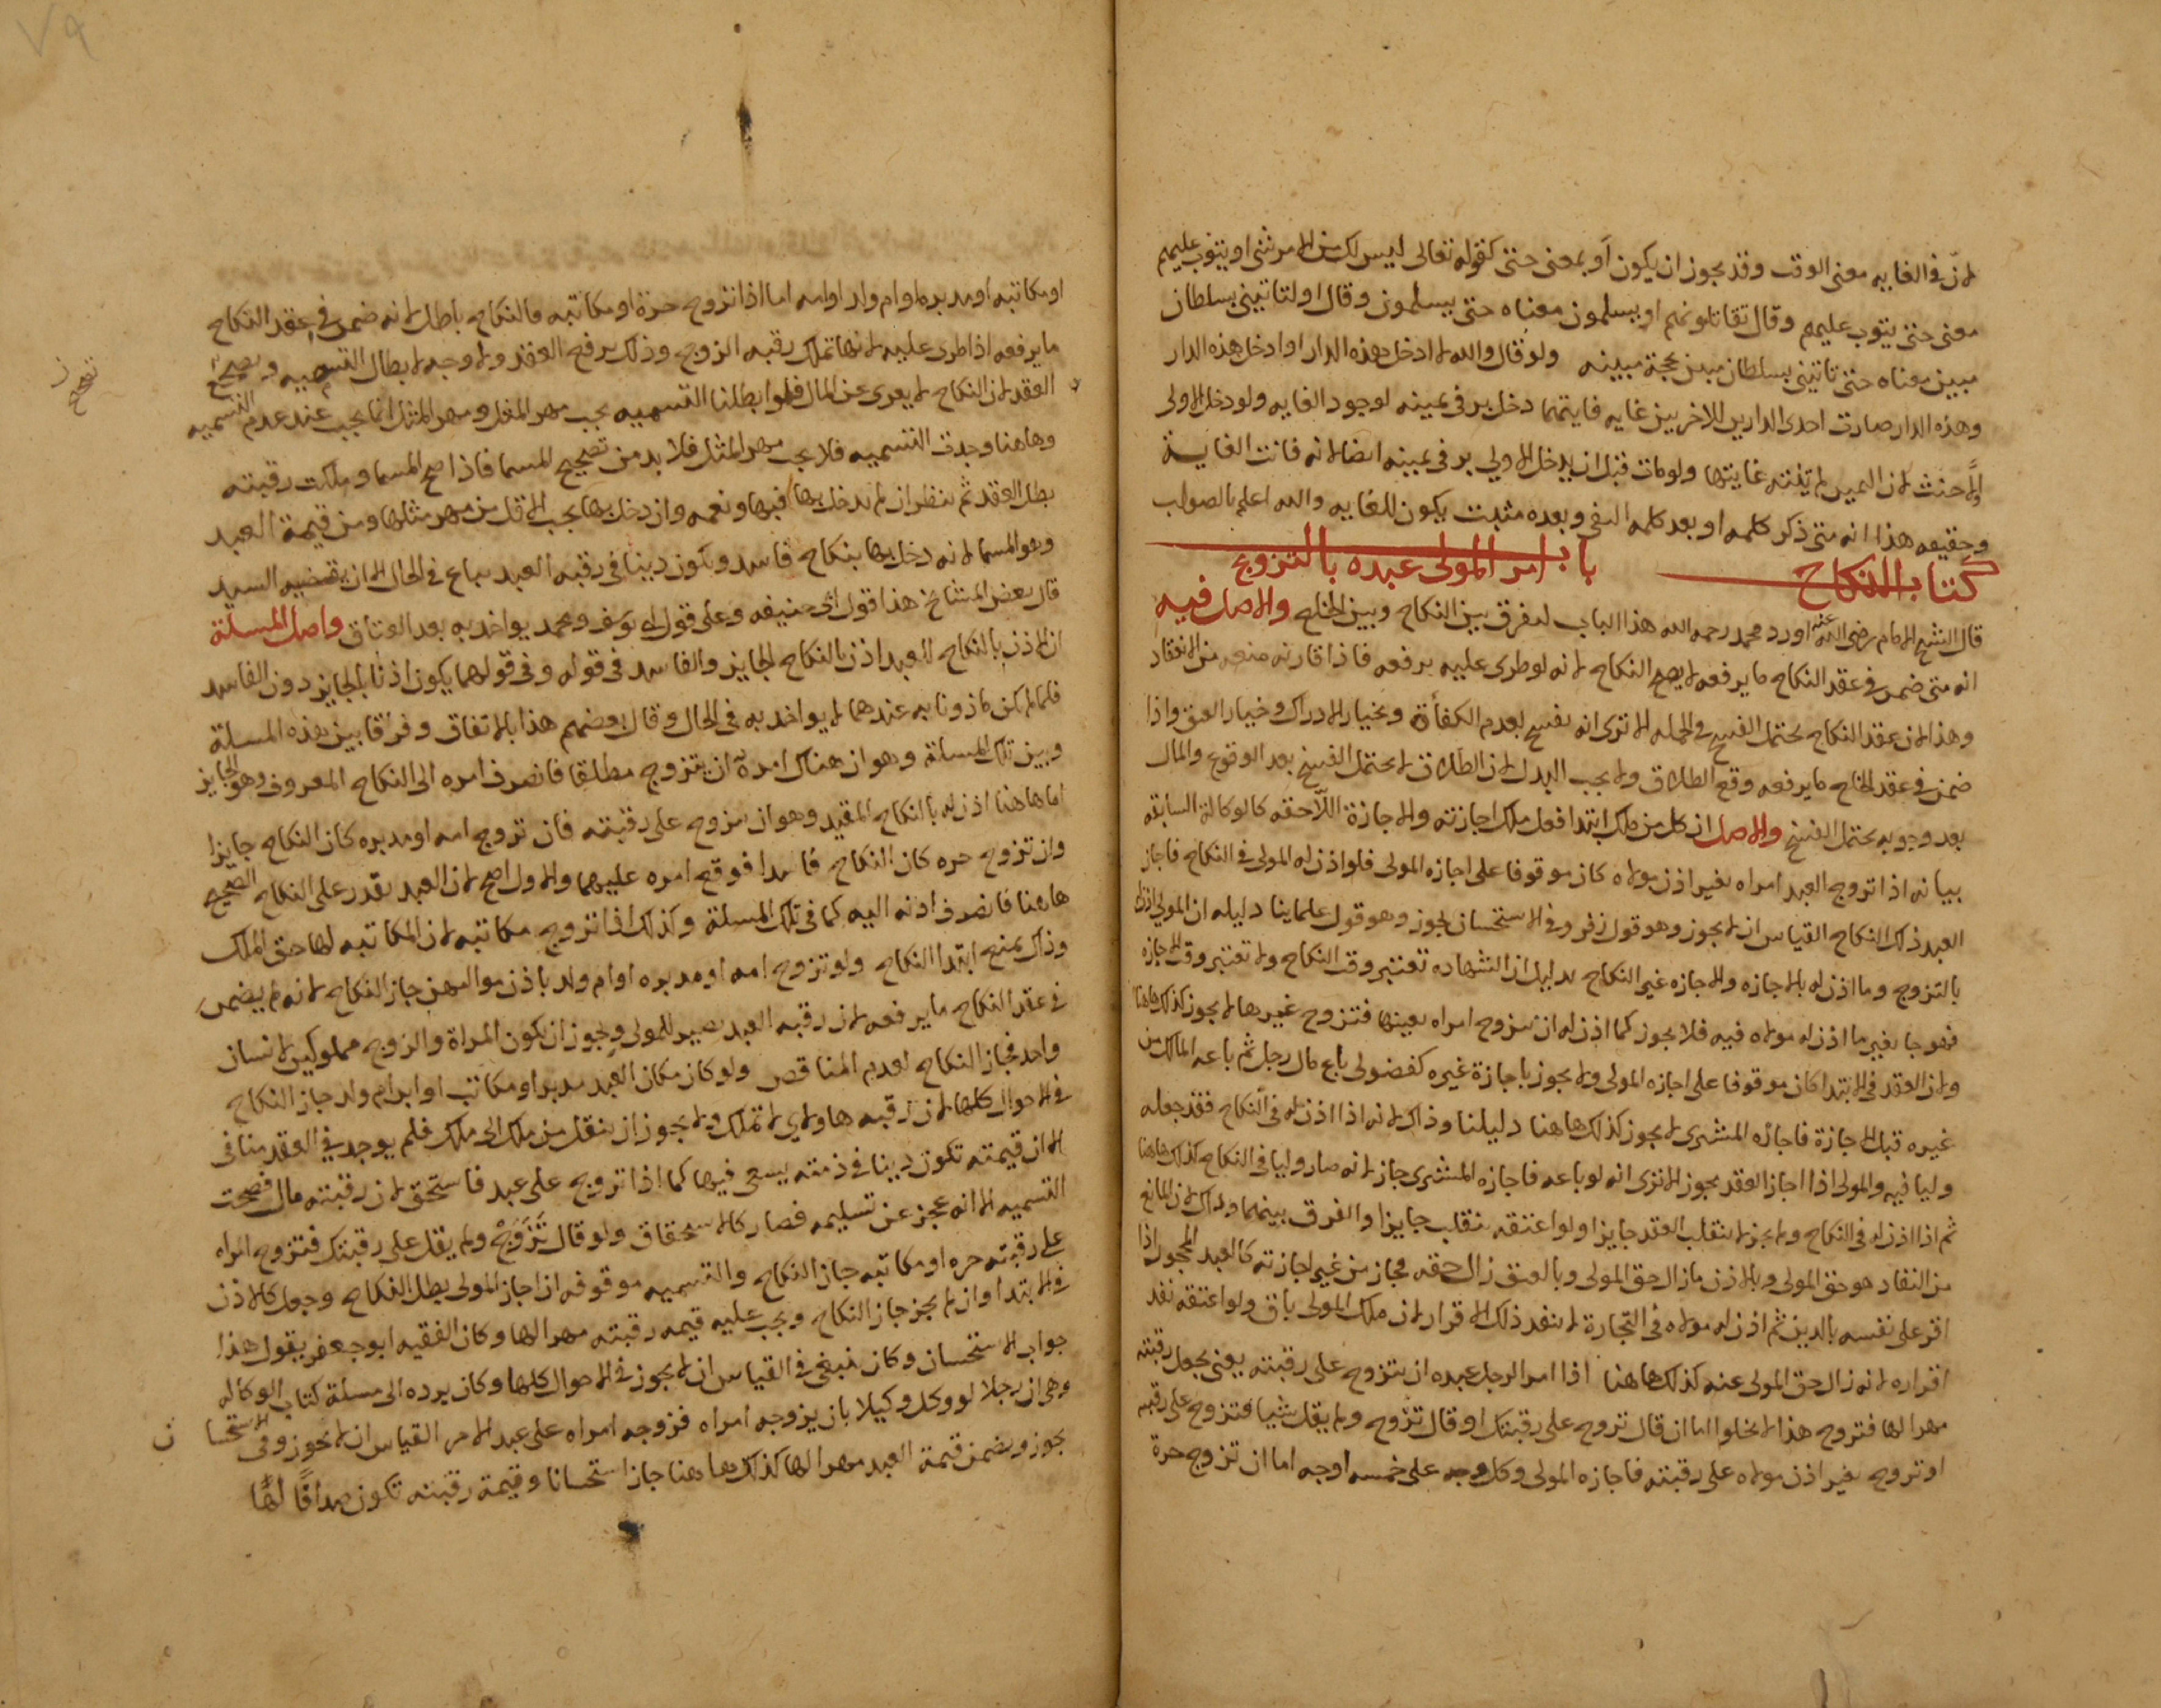 لان في الغايه معنى الوقت وقد يجوز ان يكون أو بمعنى حتى كقوله تعالى ليس لك من الامر شئ او يتوب عليهم
معنى حتى يتوب عليهم وقال تقاتلونهم او يسلمون معناه حتى يسلمون وقال او لتاتيني بسلطان
مبين معناه حتى تاتيني بسلطان مبين بحجة مبينه ولو قال والله لا ادخل هذه الدار او ادخل هذه الدار
وهذه الدار صارت احدى الدارين للاخريين غايه فايتهما دخل بر في يمينه لوجود الغايه ولو دخل الاولى
اولا حنث لان اليمين لم تنته غايتها ولو مات قبل ان يدخل الاولي بر في يمينه ايضا لانه فاتت الغاية
وحقيقه هذا انه متى ذكر كلمه او بعد كلمه النفي وبعده مثبت يكون للغايه والله اعلم بالصواب
كتاب النكاح باب امر المولى عبده بالتزوج
قال الشيخ الامام رضي الله عنه اورد محمد رحمه الله هذا الباب ليفرق بين النكاح وبين الخلع والاصل فيه
انه متى ضمن في عقد النكاح ما يرفعه لا يصح النكاح لانه لو طرى عليه يرفعه فاذا قارنه منعه من الانعقاد
وهذا لان عقد النكاح يحتمل الفسخ في الجمله الا ترى انه يفسخ لعدم الكفأة وبخيار الادراك وخيار العتق واذا
ضمن في عقد الخلع ما يرفعه وقع الطلاق ولا يجب البدل لان الطلاق لا يحتمل الفسخ بعد الوقوع والمال
بعد وجوبه يحتمل الفسخ والاصل ان كل من ملك ابتدا فعل ملك اجازته والاجازة اللاحقه كالوكالة السابقه
بيانه اذا تزوج العبد امراه بغير اذن مولاه كان موقوفا على اجازه المولى فلو اذن له المولى في النكاح فاجاز
العبد ذلك النكاح القياس ان لا يجوز وهو قول زفر وفي الاستحسان يجوز وهو قول علماينا دليله ان المولى اذن له
بالتزوج وما اذن له بالاجازه والاجازه غير النكاح بدليل ان الشهاده تعتبر وقت النكاح ولا تعتبر وقت الاجازه
فهو جا بغير ما اذن له مولاه فيه فلا يجوز كما اذن له ان يتزوج امراه بعينها فتزوج غيرها لا يجوز كذلك هاهنا
ولان العقد في الابتدا كان موقوفا على اجازه المولى ولا يجوز باجازة غيره كفضولى باع مال رجل ثم باعه المالك من
غيره قبل الاجازة فاجازه المشترى لا يجوز كذلك هاهنا دليلنا وذلك لانه اذا اذن له في النكاح فقد جعله
وليا فيه والمولى اذا اجاز العقد يجوز الا ترى انه لو باعه فاجازه المشترى جاز لانه صار وليا في النكاح كذلك هاهنا
ثم اذا اذن له في النكاح ولم يجز لا ينقلب العقد جايزا ولو اعتقه ينقلب جايزا والفرق بينهما وذلك لان المانع
من النفاد هو حق المولى وبالاذن ما زال حق المولى وبالعتق زال حقه فجاز من غير اجازته كالعبد المحجور اذا
اقر على نفسه بالدين ثم اذن له مولاه في التجارة لا ينفد ذلك الاقرار لان ملك المولى باق ولو اعتقه نفد
اقراره لانه زال حق المولى عنه كذلك هاهنا اذا امر الرجل عبده ان يتزوج على رقبته يعني يجعل رقبته
مهرا لها فتزوج هذا لا يخلوا اما ان قال تزوج على رقبتك او قال تزوج ولم يقل شيا فتزوج على رقبته
او تزوج بغير اذن مولاه على رقبته فاجازه المولى وكل وجه على خمسه اوجه اما ان تزوج حرة
٧٩
او مكاتبه او مدبره او ام ولد او امه اما اذا تزوج حرة او مكاتبه فالنكاح باطل لانه ضمن في عقد النكاح
ما يرفعه اذا طرى عليه لانها تملك رقبه الزوج وذلك يرفع العقد ولا وجه لابطال التسميه وتصحيح
العقد لان النكاح لا يعرى عن المال فلو ابطلنا التسميه يجب مهر المثل ومهر المثل انما يجب عند عدم التسميه
وهاهنا وجدت التسميه فلا يجب مهر المثل فلا بد من تصحيح المسما فاذا صح المسما وملكت رقبته
بطل العقد ثم ينظر ان لم يدخل بها فبها ونعمه وان دخل بها يجب الاقل من مهر مثلها ومن قيمة العبد
وهو المسما لانه دخل بها بنكاح فاسد ويكون دينا في رقبه العبد يباع في الحال الا ان يقضيه السيد
قال بعض المشائخ هذا قول ابي حنيفه وعلى قول ابي يوسف ومحمد يواخد به بعد العتاق واصل المسلة
ان الاذن بالنكاح للعبد اذن بالنكاح الجايز والفاسد في قوله وفي قولهما يكون اذنا بالجايز دون الفاسد
فلما لم يكن ماذونا به عندهما لا يواخد به في الحال وقال بعضهم هذا بالاتفاق وفرقا بين هذه المسلة
وبين تلك المسلة وهو ان هناك امره ان يتزوج مطلقا فانصرف امره الى النكاح المعروف وهو الجايز
اما هاهنا اذن له بالنكاح المقيد وهو ان يتزوج على رقبته فان تزوج امه او مدبره كان النكاح جايزا
وان تزوج حره كان النكاح فاسدا فوقع امره عليهما والاول اصح لان العبد يقدر على النكاح الصحيح
هاهنا فانصرف اذنه اليه كما في تلك المسلة وكذلك اذا تزوج مكاتبه لان المكاتبه لها حق الملك
وذلك يمنع ابتدا النكاح ولو تزوج امه او مدبره او ام ولد باذن مواليهن جاز النكاح لانه لم يضمن
في عقد النكاح ما يرفعه لان رقبه العبد يصير للمولى ويجوز ان يكون المراة والزوج مملوكين لانسان
واحد فجاز النكاح لعدم المناقص ولو كان مكان العبد مدبر او مكاتب او ابن ام ولد جاز النكاح
في الاحوال كلها لان رقبه هاولاى لا تملك ولا يجوز ان ينقل من ملك الى ملك فلم يوجد في العقد منافى
الا ان قيمته تكون دينا في ذمته يسعى فيها كما اذا تزوج على عبد فاستحق لان رقبته مال فصحت
التسميه الا انه عجز عن تسليمه فصار كالاستحقاق ولو قال تزوج ولم يقل على رقبتك فتزوج امراه
على رقبته حره او مكاتبه جاز النكاح والتسميه موقوفه ان اجاز المولى بطل النكاح وجعل كالاذن
في الابتدا وان لم يجز جاز النكاح ويجب عليه قيمه رقبته مهرا لها وكان الفقيه ابو جعفر يقول هذا
جواب الاستحسان وكان ينبغي في القياس ان لا يجوز في الاحوال كلها وكان يرده الى مسلة كتاب الوكاله
وهى ان رجلا لو وكل وكيلا بان يزوجه امراه فزوجه امراه على عبد الامر القياس ان لا يجوز وفي الاستحسان
يجوز ويضمن قيمة العبد مهرا لها كذلك هاهنا جاز استحسانا وقيمة رقبته تكون صداقا لها